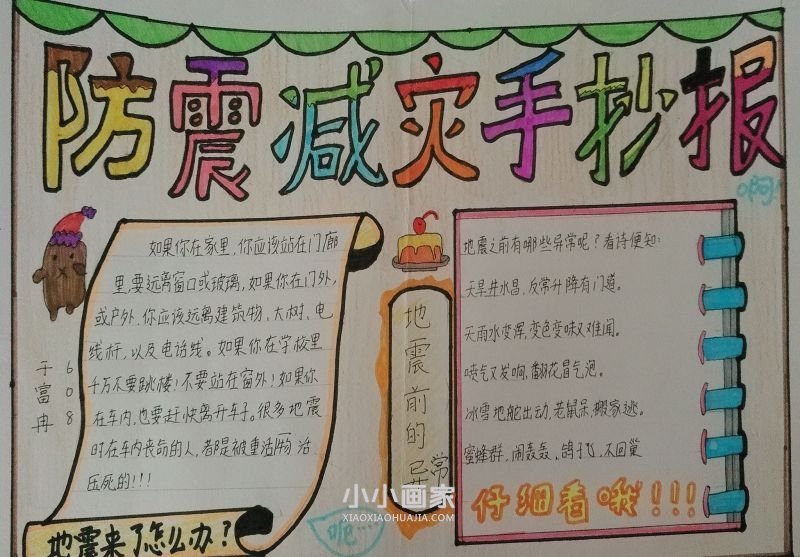 防震减灾手抄报
如果你在家里,你应该站在门廊
里,要远离窗口或玻璃,如果你在门外,
或户外,你应该远离建筑物、大树、电
线杆,以及电话线。如果你在学校里
千万不要跳楼!不要站在窗外!如果你
在车内,也要赶快离开车子。很多地震
时在车内丧命的人,都是被重活物 活
压死的!!!
地震来了怎么办?
608
于富冉
地震前的异常
地震之前有哪些异常呢?看诗便知:
天旱井水冒,反常升降有门道。
天雨水变浑,变色变味又难闻。
喷气又发响,翻花冒气泡。
冰雪地蛇出动,老鼠呆,搬家逃。
蜜蜂群,闹轰轰,鸽子飞,不回巢
仔细看哦!!!
啊
呃
小小画家
XIAOXIAOHUAJIA.COM